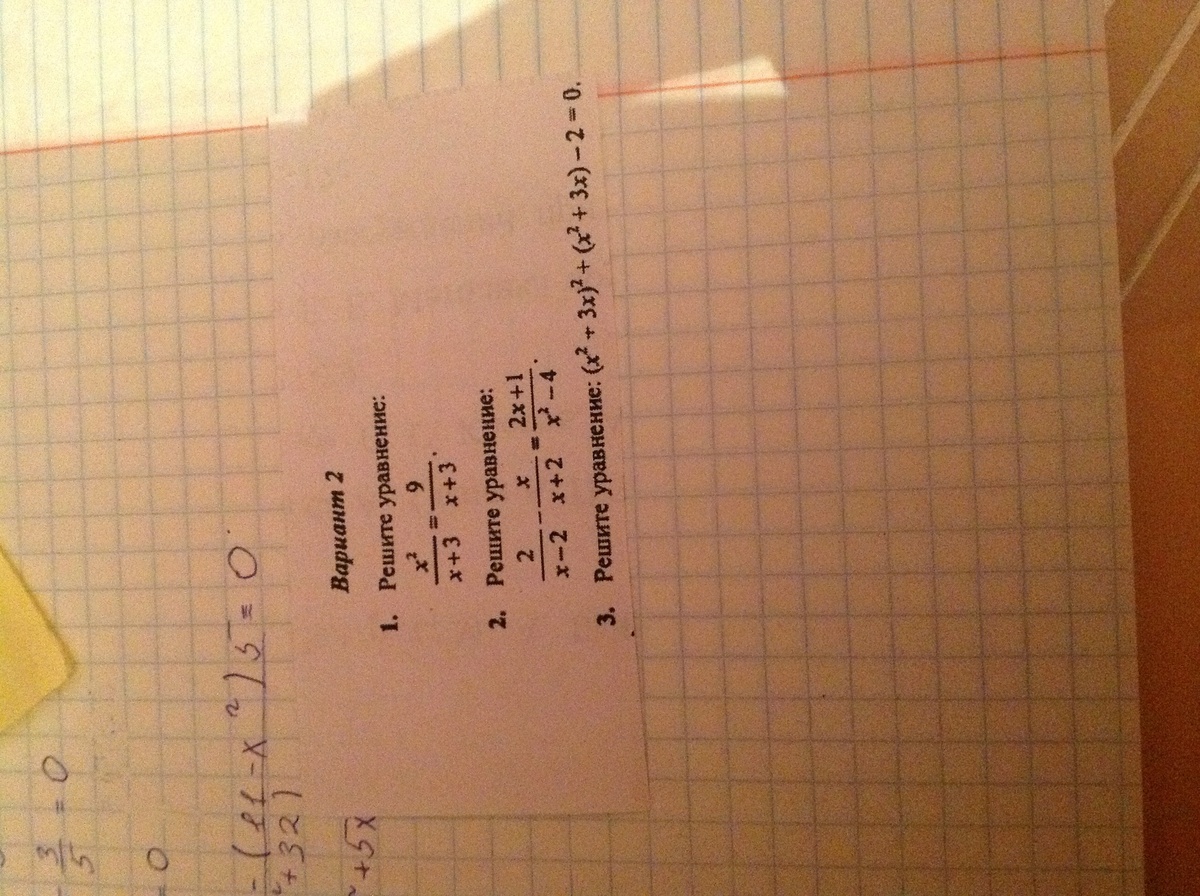 - 3/5 = 0
= 0
- (11 - x²) 5 = 0
²+32)
²+5x
Вариант 2
1. Решите уравнение:
x²/(x+3) = 9/(x+3).
2. Решите уравнение:
2/(x−2) − x/(x+2) = (2x+1)/(x²−4).
3. Решите уравнение: (x² + 3x)² + (x² + 3x) − 2 = 0.